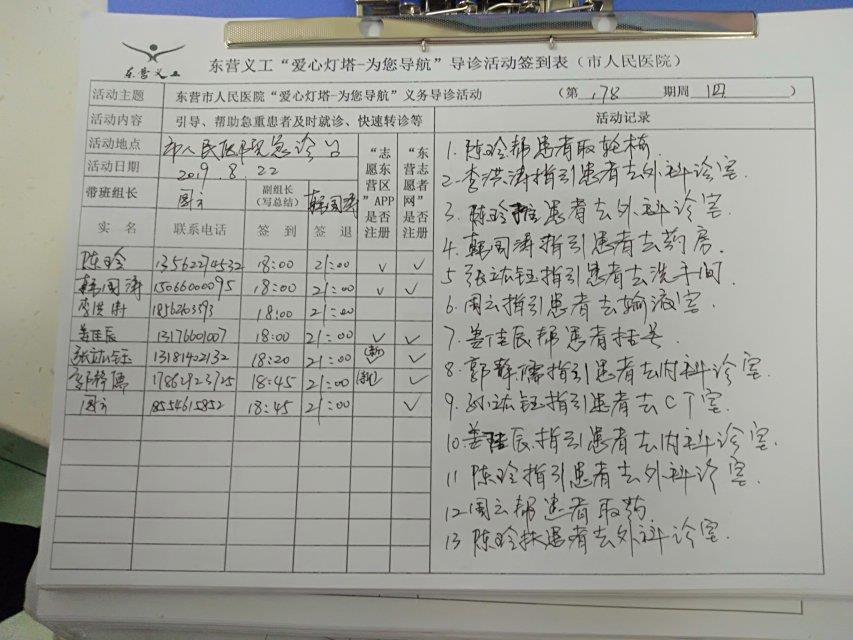 东营义工
东营义工“爱心灯塔-为您导航”导诊活动签到表（市人民医院）
活动主题 东营市人民医院“爱心灯塔-为您导航”义务导诊活动 （第 178 期周 四 ）
活动内容 引导、帮助急重患者及时就诊、快速转诊等
活动地点 市人民医院急诊台
活动日期 2019.8.22
带班组长 周云 副组长（写总结） 韩国涛
“志愿东营区”APP是否注册
“东营志愿者网”是否注册
实名 联系电话 签到 签退
陈玲 13562274532 18:00 21:00 ✓ ✓
韩国涛 15066000095 18:00 21:00 ✓ ✓
李洪涛 18:00 21:00
姜佳辰 13176601007 18:00 21:00 ✓ ✓
张竑钰 13181402132 18:20 21:00 ✓
郭静儒 17861923725 18:45 21:00 ✓
周云 18554615852 18:45 21:00 ✓
活动记录
1. 陈玲帮患者取轮椅
2. 李洪涛指引患者去外科诊室.
3. 陈玲推患者去外科诊室
4. 韩国涛指引患者去药房.
5 张竑钰指引患者去洗手间
6. 周云指引患者去输液室.
7. 姜佳辰帮患者挂号
8. 郭静儒指引患者去内科诊室
9. 张竑钰指引患者去CT室.
10. 姜佳辰指引患者去内科诊室.
11 陈玲指引患者去外科诊室.
12 周云帮患者取药
13 陈玲扶患者去外科诊室.